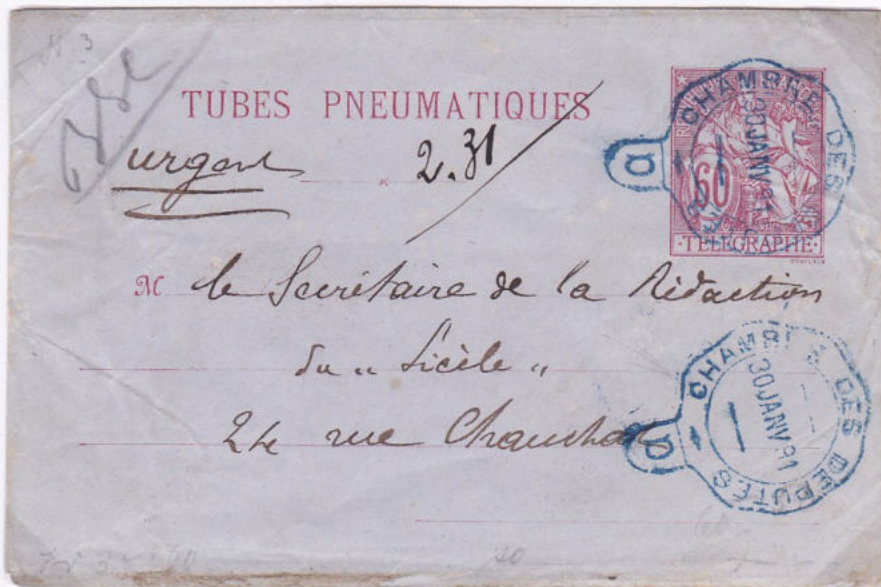 TUBES PNEUMATIQUES
urgent
2.31
CHAMBRE DES
30 JANV 91
a
60
TELEGRAPHE
CHAPLAIN
M le Secrétaire de la Rédaction
du „ Siècle „
24 rue Chauchat
CHAMBRE DES DEPUTES
30 JANV 91
a